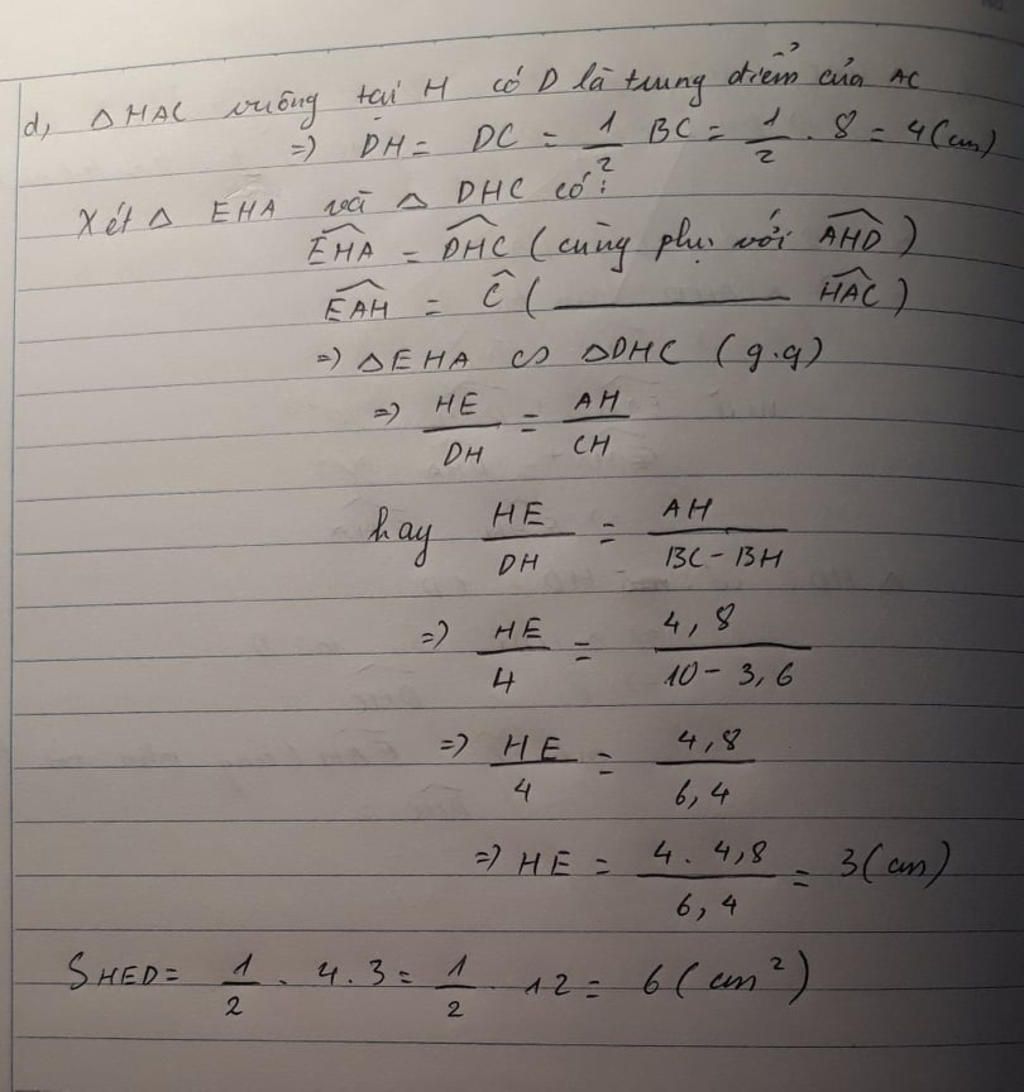 d, △HAC vuông tại H có D là trung điểm của AC
=) DH = DC = 1/2 BC = 1/2 . 8 = 4(cm)
Xét △ EHA và △ DHC có:
\widehat{EHA} = \widehat{DHC} (cùng phụ với \widehat{AHD})
\widehat{EAH} = \widehat{C} (________ \widehat{HAC})
=) △EHA ∽ △DHC (g.g)
=) HE/DH = AH/CH
hay HE/DH = AH/BC - BH
=) HE/4 = 4,8/10 - 3,6
=) HE/4 = 4,8/6,4
=) HE = 4. 4,8/6,4 = 3(cm)
S HED = 1/2 . 4.3 = 1/2 . 12 = 6(cm²)